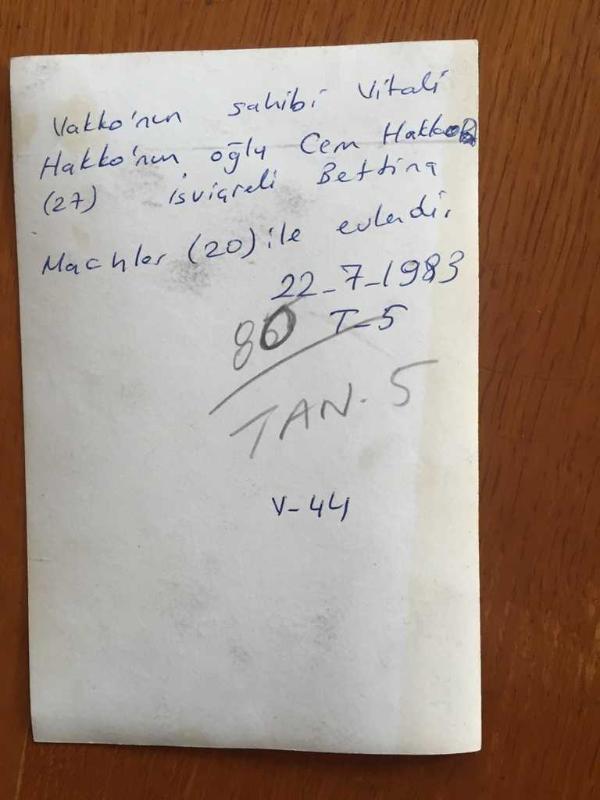 Vakko'nun sahibi Vitali
Hakko'nun oğlu Cem Hakko
(27) isviçreli Bettina
Machler (20) ile evlendi.
22-7-1983
80 T-5
TAN-5
V-44